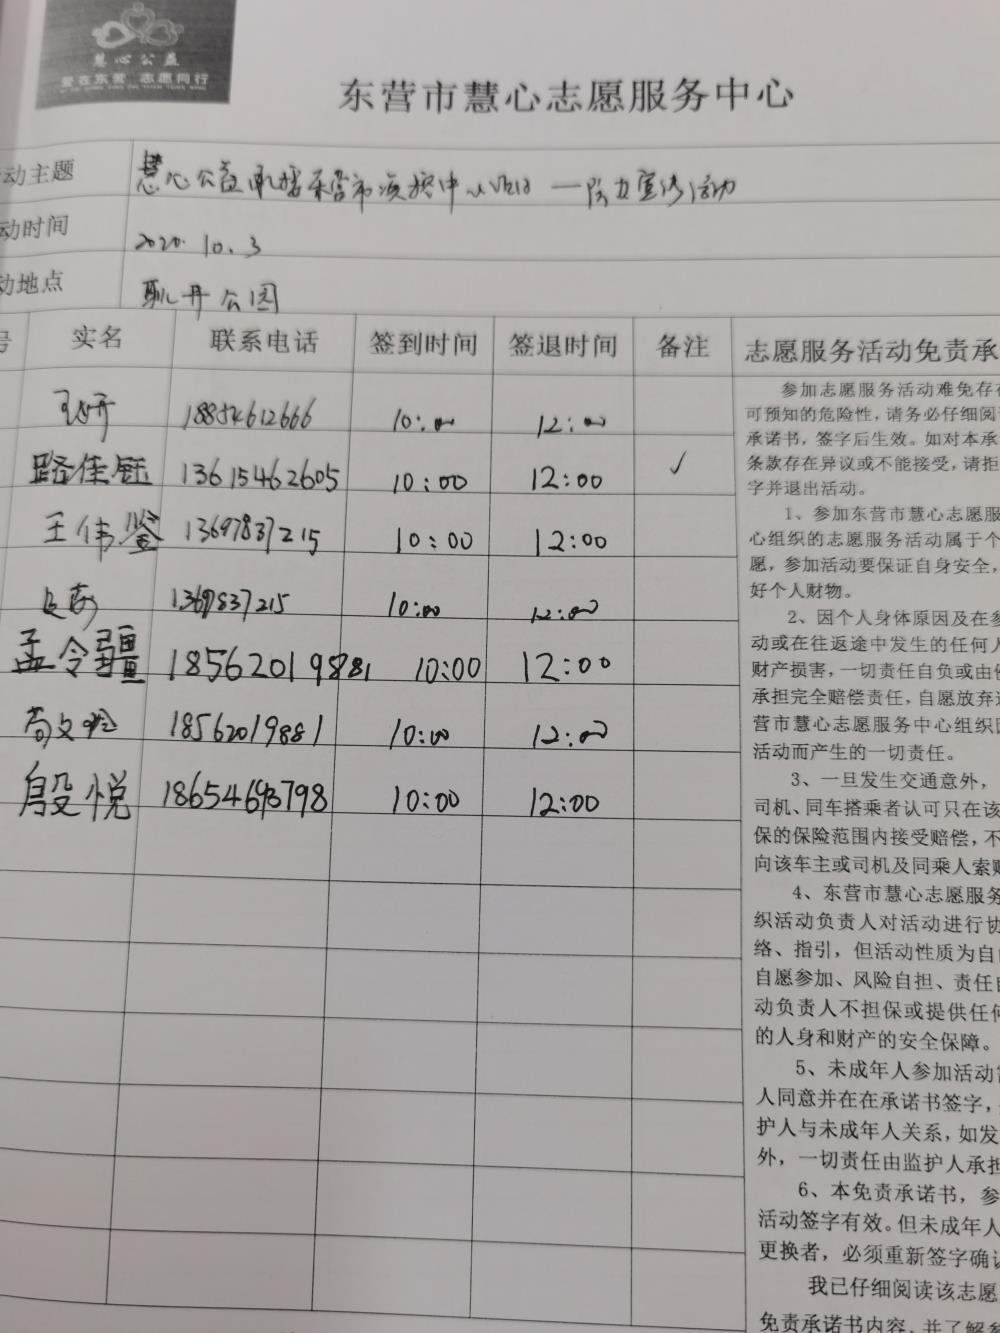 慧心公益
爱在东营 志愿同行
东营市慧心志愿服务中心
动主题 慧心公益 东营市 中心 活动
动时间 2020.10.3
动地点 公园
号 实名 联系电话 签到时间 签退时间 备注
18854612666 10:00 12:00
路佳钰 13615462605 10:00 12:00 ✓
王伟鉴 13697837215 10:00 12:00
1369837215 10:00 12:00
孟令疆 18562019881 10:00 12:00
18562019881 10:00 12:00
殷悦 10:00 12:00
志愿服务活动免责承
参加志愿服务活动难免存在
可预知的危险性，请务必仔细阅
承诺书，签字后生效。如对本承
条款存在异议或不能接受，请拒
字并退出活动。
1、参加东营市慧心志愿服
心组织的志愿服务活动属于个
愿，参加活动要保证自身安全，
好个人财物。
2、因个人身体原因及在参
动或在往返途中发生的任何人
财产损害，一切责任自负或由
承担完全赔偿责任，自愿放弃
营市慧心志愿服务中心组织
活动而产生的一切责任。
3、一旦发生交通意外，
司机、同车搭乘者认可只在该
保的保险范围内接受赔偿，不
向该车主或司机及同乘人索赔
4、东营市慧心志愿服务
织活动负责人对活动进行协
络、指引，但活动性质为自
自愿参加、风险自担、责任
动负责人不担保或提供任何
的人身和财产的安全保障。
5、未成年人参加活动
人同意并在在承诺书签字，
护人与未成年人关系，如发
外，一切责任由监护人承担
6、本免责承诺书，参
活动签字有效。但未成年人
更换者，必须重新签字确认
我已仔细阅读该志愿
免责承诺书内容，并了解